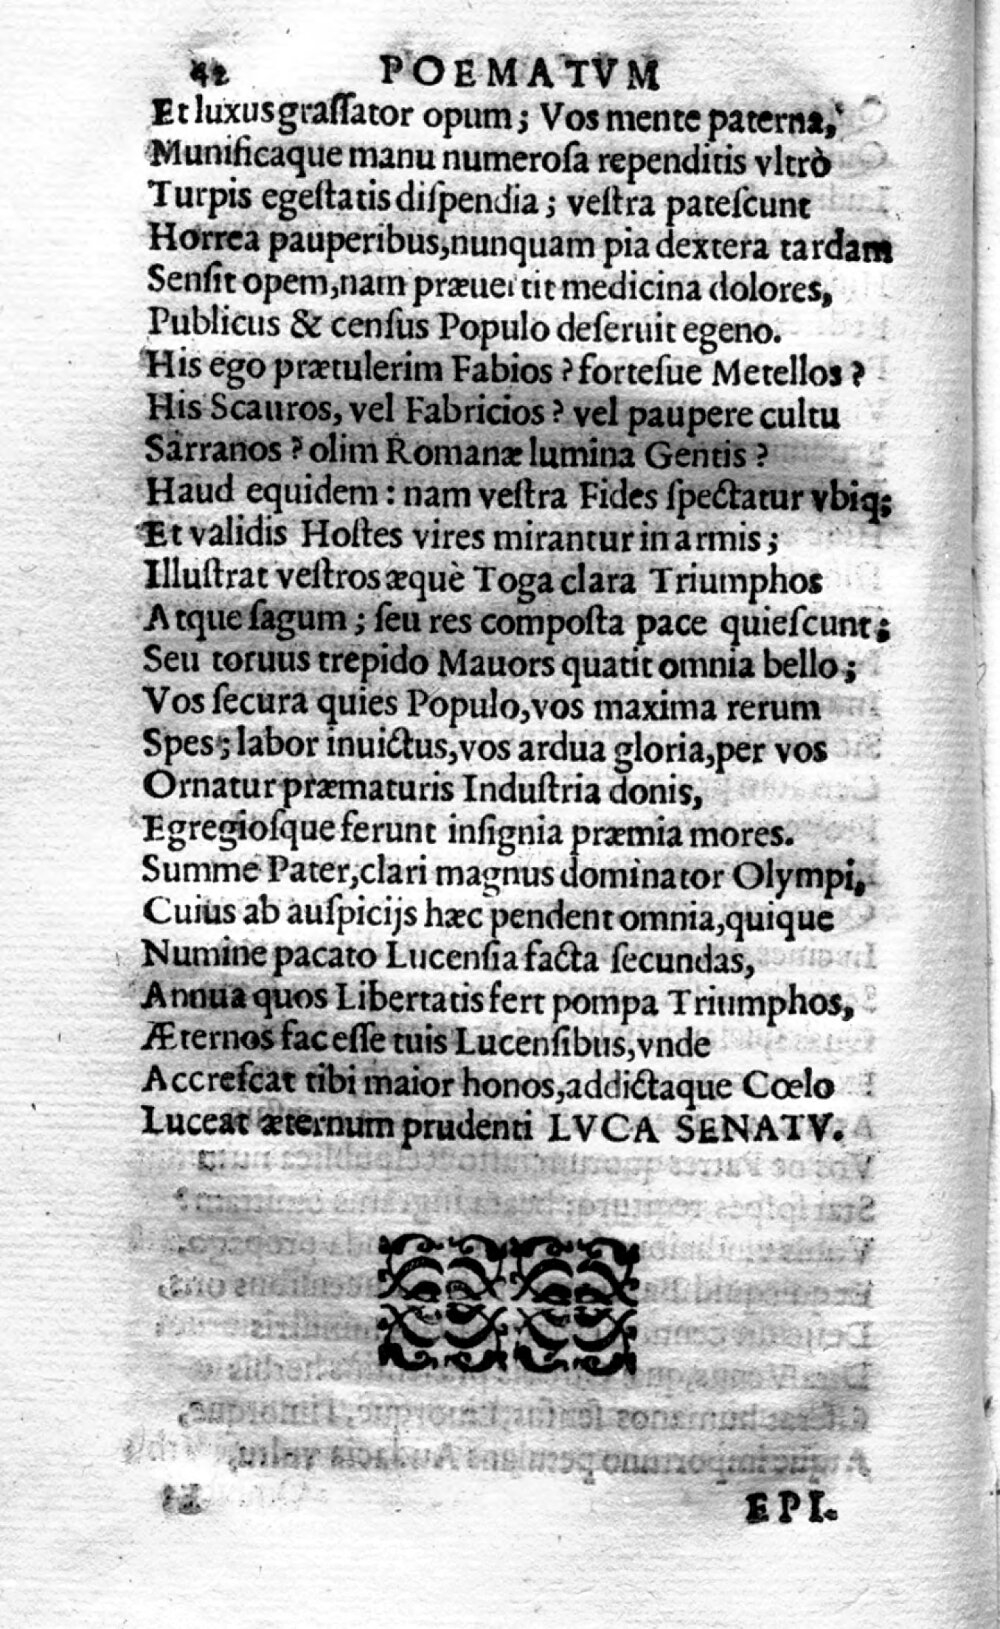 42 POEMATVM
Et luxus graſſator opum; Vos mente paterna,
Munificaque manu numeroſa rependitis vltrò
Turpis egeſtatis diſpendia; veſtra pateſcunt
Horrea pauperibus, nunquam pia dextera tardam
Senſit opem, nam præuertit medicina dolores,
Publicus & cenſus Populo deſeruit egeno.
His ego prætulerim Fabios? forteſue Metellos?
His Scauros, vel Fabricios? vel paupere cultu
Sarranos? olim Romanæ lumina Gentis?
Haud equidem: nam veſtra Fides ſpectatur vbiq;
Et validis Hoſtes vires mirantur in armis;
Illuſtrat veſtros æquè Toga clara Triumphos
Atque ſagum; ſeu res compoſta pace quieſcunt;
Seu toruus trepido Mauors quatit omnia bello;
Vos ſecura quies Populo, vos maxima rerum
Spes; labor inuictus, vos ardua gloria, per vos
Ornatur præmaturis Induſtria donis,
Egregioſque ferunt inſignia præmia mores.
Summe Pater, clari magnus dominator Olympi,
Cuius ab auſpicijs hæc pendent omnia, quique
Numine pacato Lucenſia facta ſecundas,
Annua quos Libertatis fert pompa Triumphos,
Æternos fac eſſe tuis Lucenſibus, vnde
Accreſcat tibi maior honos, addictaque Cœlo
Luceat æternum prudenti LVCA SENATV.
EPI.